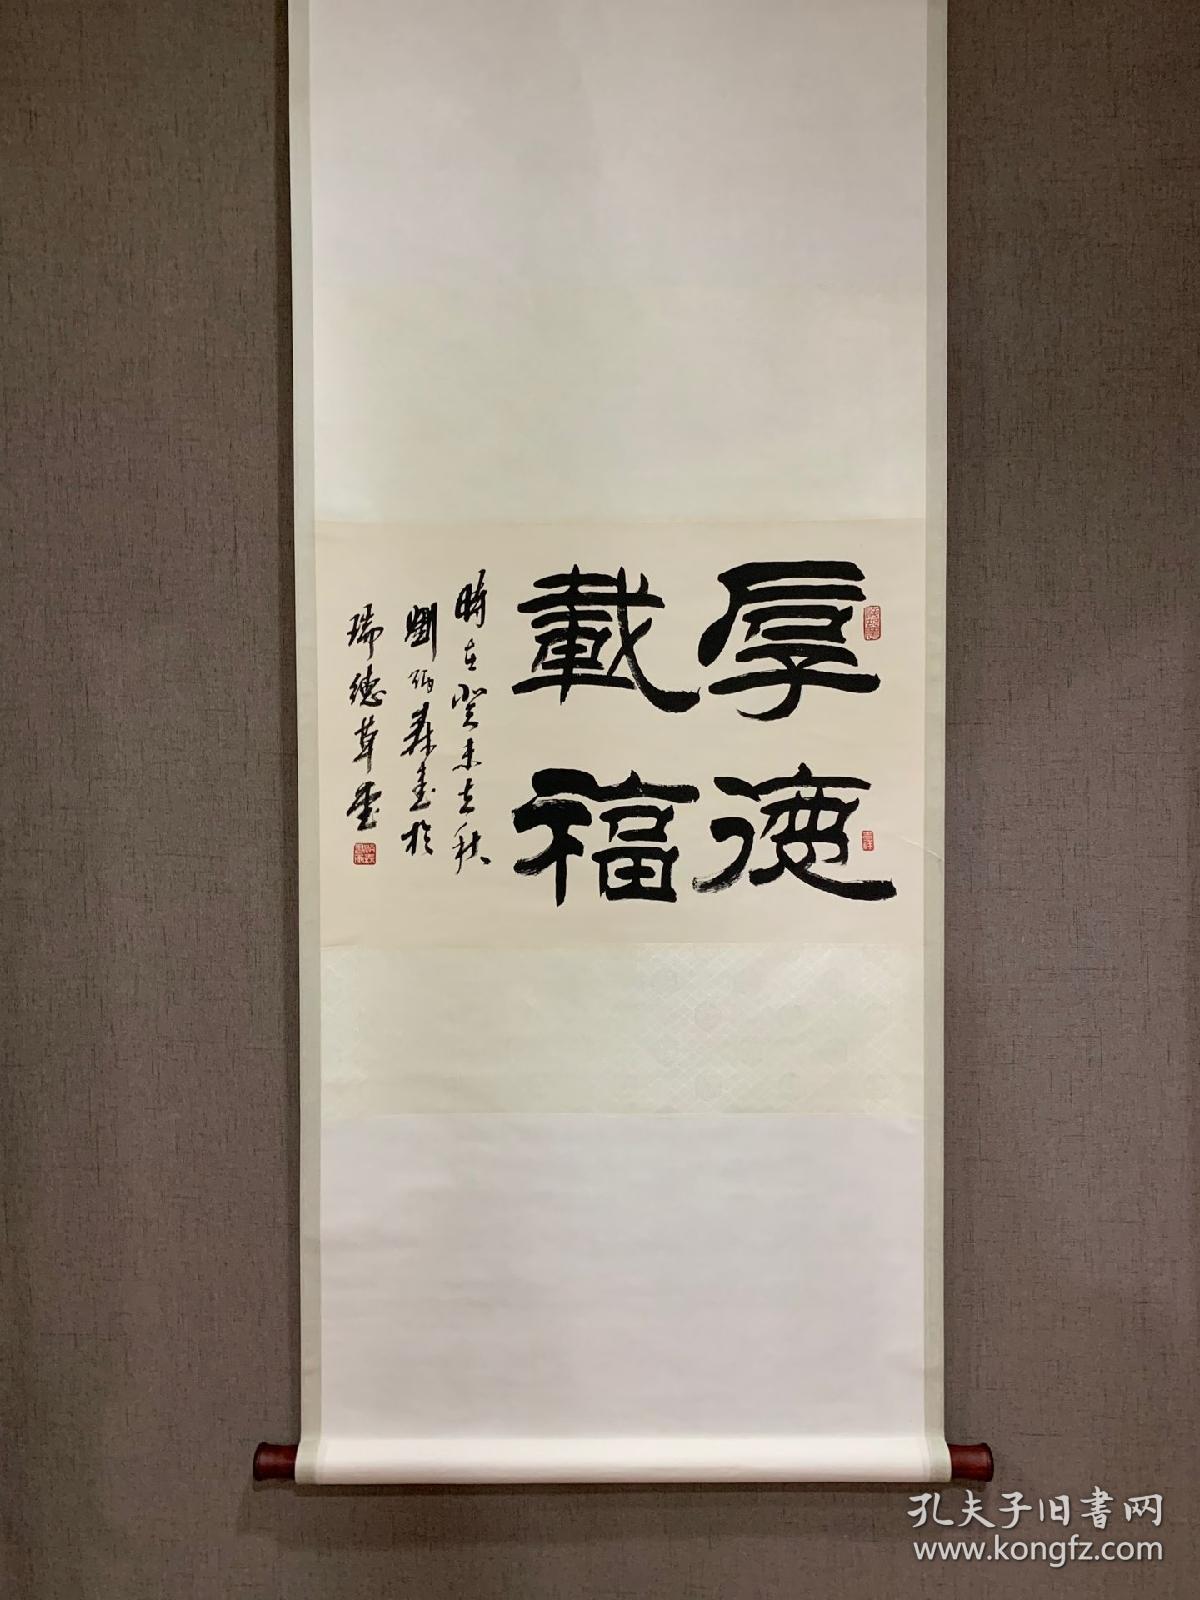 厚德
載福
時在癸未之秋
劉炳森書於
瑞德草堂
孔夫子旧書网
www.kongfz.com